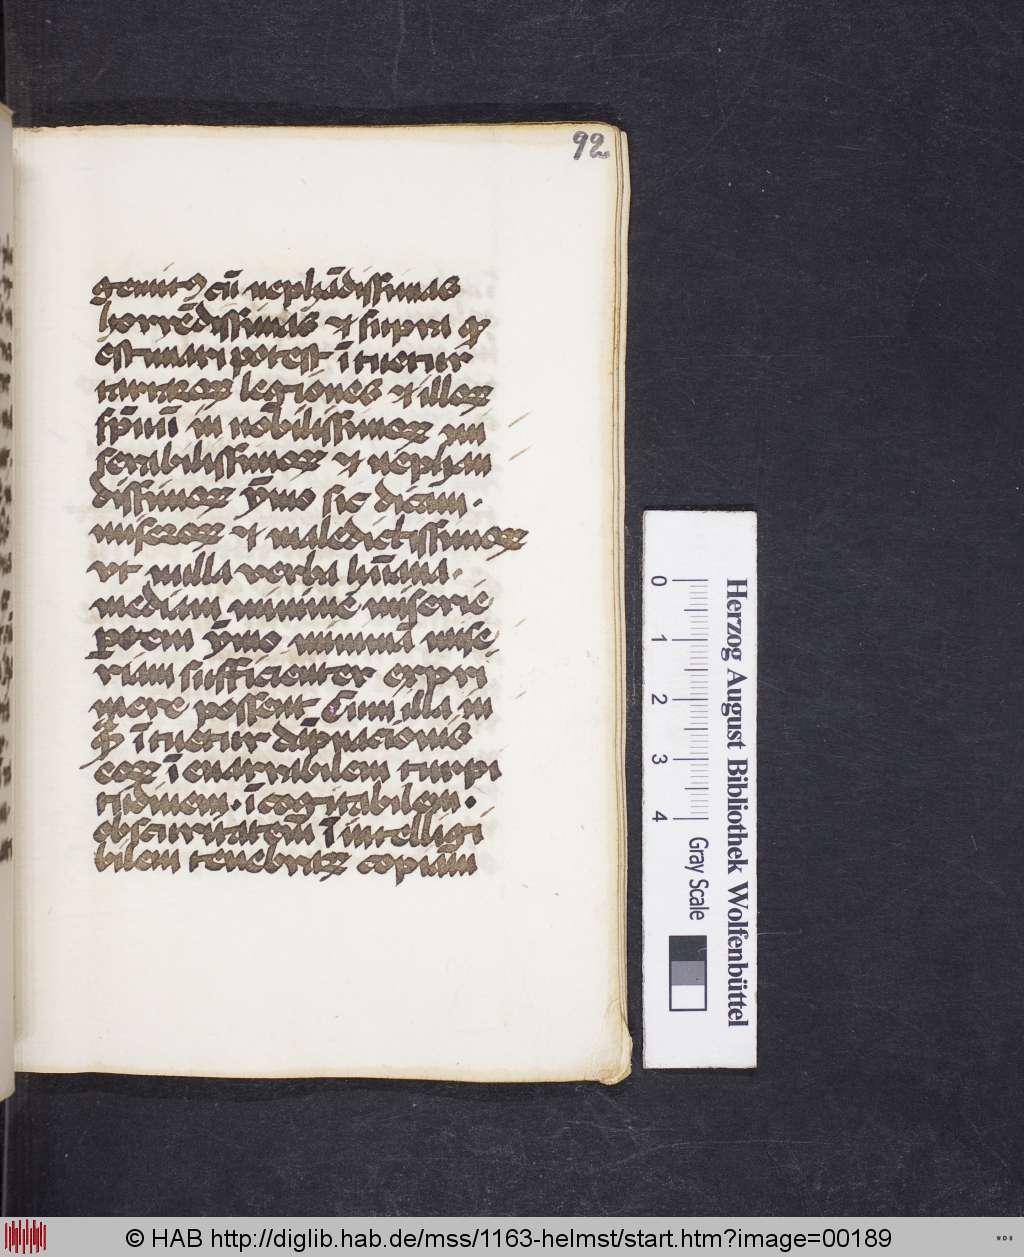 92
gemitꝰ cū nephādissimas
horrēdissimas ⁊ supra qͣ
estimari potest ītuetur
tartareoꝝ legiones ⁊ illoꝝ
spūm in nobilissimoꝝ ym
serabilissimoꝝ ⁊ nephan
dissimoꝝ ȳmo sic dicam·
miseroꝝ ⁊ maledictissimoꝝ
vt nulla verba hūana·
mediam minime miserie
ꝑtem ȳmo minimā mise
riam sufficienter expri
mere possent Cum illa in
ītuetur dāpnacionis
eoꝝ īenarrabilem turpi
tudinem· īcogitabilem·
obscuritatem īintelligi
bilem tenebraꝝ copiam
Herzog August Bibliothek Wolfenbüttel
0 1 2 3 4
Gray Scale
© HAB http://diglib.hab.de/mss/1163-helmst/start.htm?image=00189